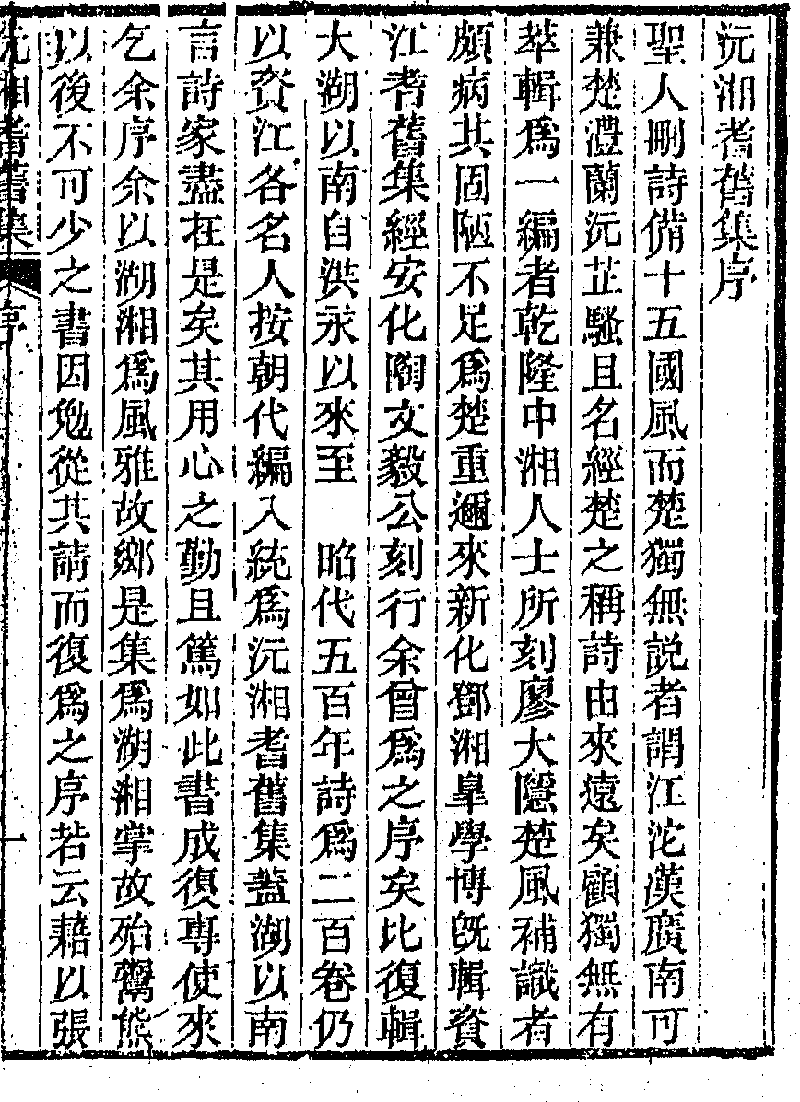 沅湘耆舊集序
聖人刪詩備十五國風而楚獨無説者謂江沱漢廣南可
兼楚澧蘭沅芷騷且名經楚之稱詩由來遠矣顧獨無有
萃輯爲一編者乾隆中湘人士所刻廖大隱楚風補識者
頗病其固陋不足爲楚重邇來新化鄧湘皐學博旣輯資
江耆舊集經安化陶文毅公刻行余曾爲之序矣比復輯
大湖以南自洪永以來至　昭代五百年詩爲二百卷仍
以資江各名人按朝代編入統爲沅湘耆舊集蓋湖以南
言詩家盡在是矣其用心之勤且篤如此書成復專使來
乞余序余以湖湘爲風雅故鄉是集爲湖湘掌故殆鬻熊
以後不可少之書因勉從其請而復爲之序若云藉以張
沅湘耆舊集　序　一